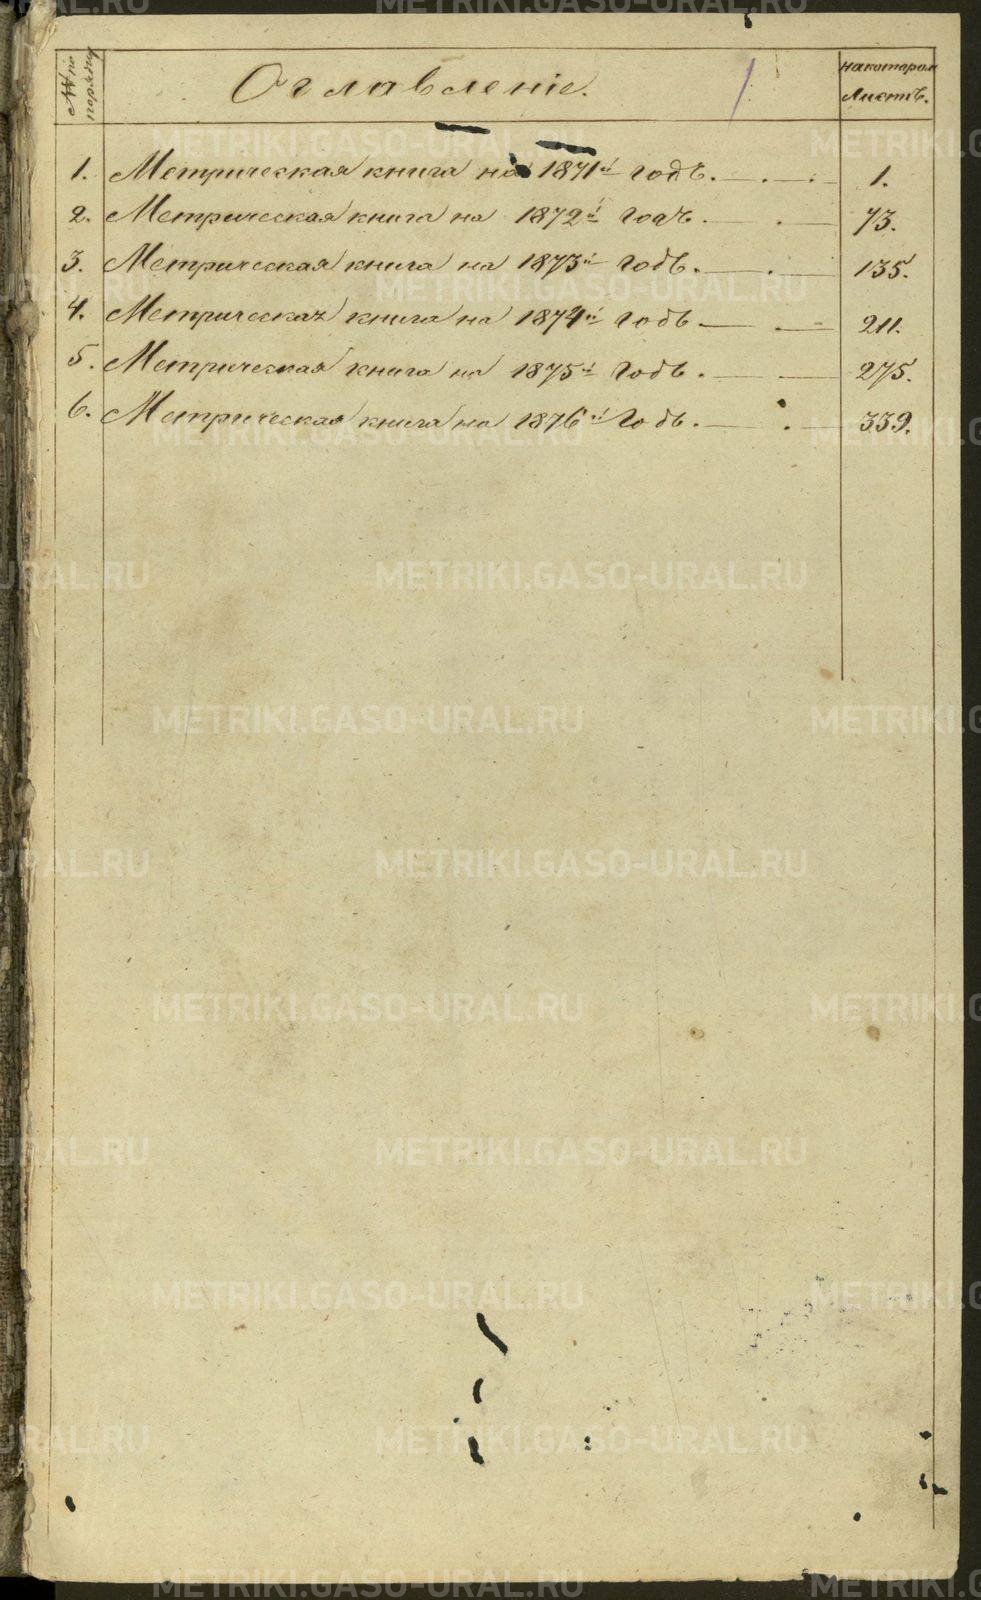 №№ по порядку
Оглавленіе.
на котором листѣ.
1. Метрическая книга на 1871й годъ. 1.
2. Метрическая книга на 1872й годъ. 73.
3. Метрическая книга на 1873й годъ. 135.
4. Метрическая книга на 1874й годъ 211.
5. Метрическая книга на 1875й годъ. 275.
6. Метрическая книга на 1876й годъ. 339.
METRIKI.GASO-URAL.RU